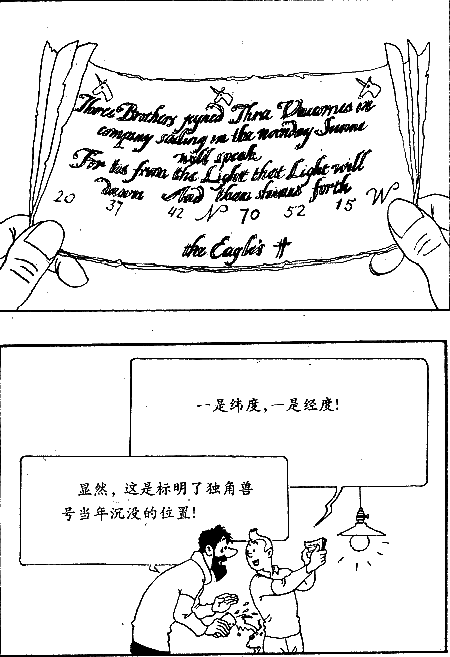 Three Brothers joyned Three Unicornes in
company sailing in the noonday Sunne
will speak
For tis from the Light that Light will
dawn And then shines forth
20 37 42 N 70 52 15 W
the Eagles
一是纬度,一是经度!
显然, 这是标明了独角兽
号当年沉没的位置!